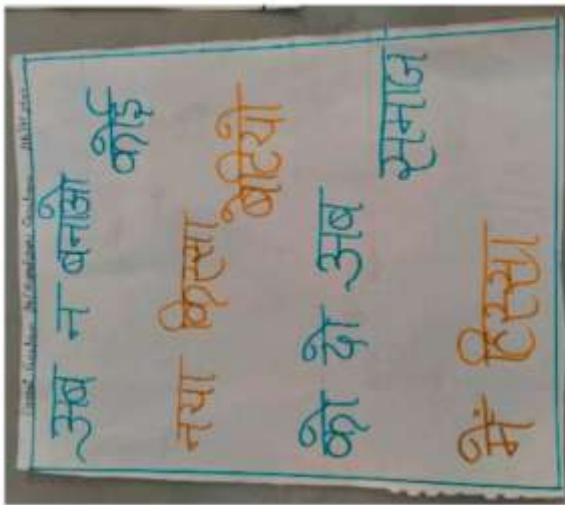 अब न बनाओ कोई
नया किस्सा बेटियो
को दो अब समाज
में हिस्सा